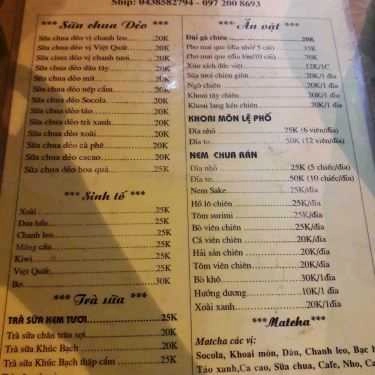 Ship: 0438582794 - 097 200 8693
*** Sữa chua Dẻo ***
Sữa chua dẻo vị chanh leo 20K
Sữa chua dẻo vị Việt Quất 20K
Sữa chua dẻo vị chanh tươi 20K
Sữa chua dẻo dâu tây 20K
Sữa chua dẻo mít 20K
Sữa chua dẻo nếp cẩm 20K
Sữa chua dẻo Socola 20K
Sữa chua dẻo táo 20K
Sữa chua dẻo trà xanh 20K
Sữa chua dẻo xoài 20K
Sữa chua dẻo cà phê 20K
Sữa chua dẻo cacao 20K
Sữa chua dẻo hoa quả 25K
*** Sinh tố ***
Xoài 25K
Dưa hấu 25K
Chanh leo 25K
Mãng cầu 25K
Kiwi 25K
Việt Quất 25K
Bơ 30K
*** Trà sữa ***
TRÀ SỮA KEM TƯƠI 25K
Trà sữa chân trâu sợi 20K
Trà sữa Khúc Bạch 20K
Trà sữa Khúc Bạch thập cẩm 25K
*** Ăn vặt ***
Dại gà chiên 20K
Pho mai que 35K
Pho mai que
Xúc xích đức việt 12K/1C
Sữa tươi chiên giòn 20K/1đĩa
Ngô chiên 20K/1đĩa
Khoai tây chiên 20K/1đĩa
Khoai lang kén chiên 20K/1đĩa
KHOAI MÔN LỆ PHỐ
Dĩa nhỏ 25K (6 viên/đĩa)
Dĩa to 50K (12 viên/đĩa)
NEM CHUA RÁN
Dĩa nhỏ 25K (5 chiếc/đĩa)
Dĩa to 50K (10 chiếc/đĩa)
Nem Sake 25K/đĩa
Hồ lô chiên 25K/đĩa
Tôm surimi 25K/đĩa
Bò viên chiên 25K/đĩa
Cá viên chiên 20K/đĩa
Hải sản chiên 20K/đĩa
Tôm viên chiên 20K/đĩa
Bò khô 30K/1 đĩa
Hướng dương 10K/1đĩa
Xoài xanh 20K/1đĩa
***Matcha***
Matcha các vị:
Socola, Khoai môn, Dâu, Chanh leo, Bạc
Táo xanh,Ca cao, Sữa chua, Cafe, Nho,